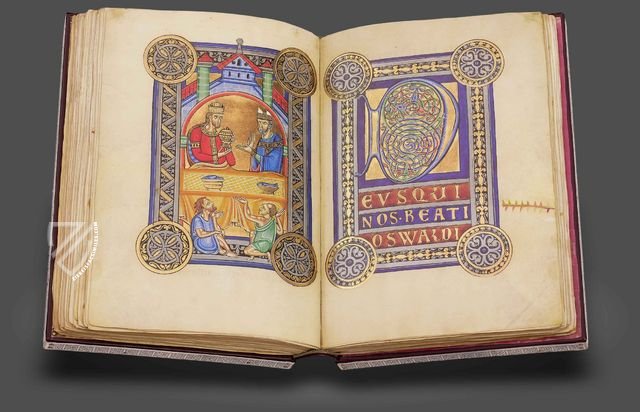 D
EVSQVI
NOS·BEATI
OSWALDI